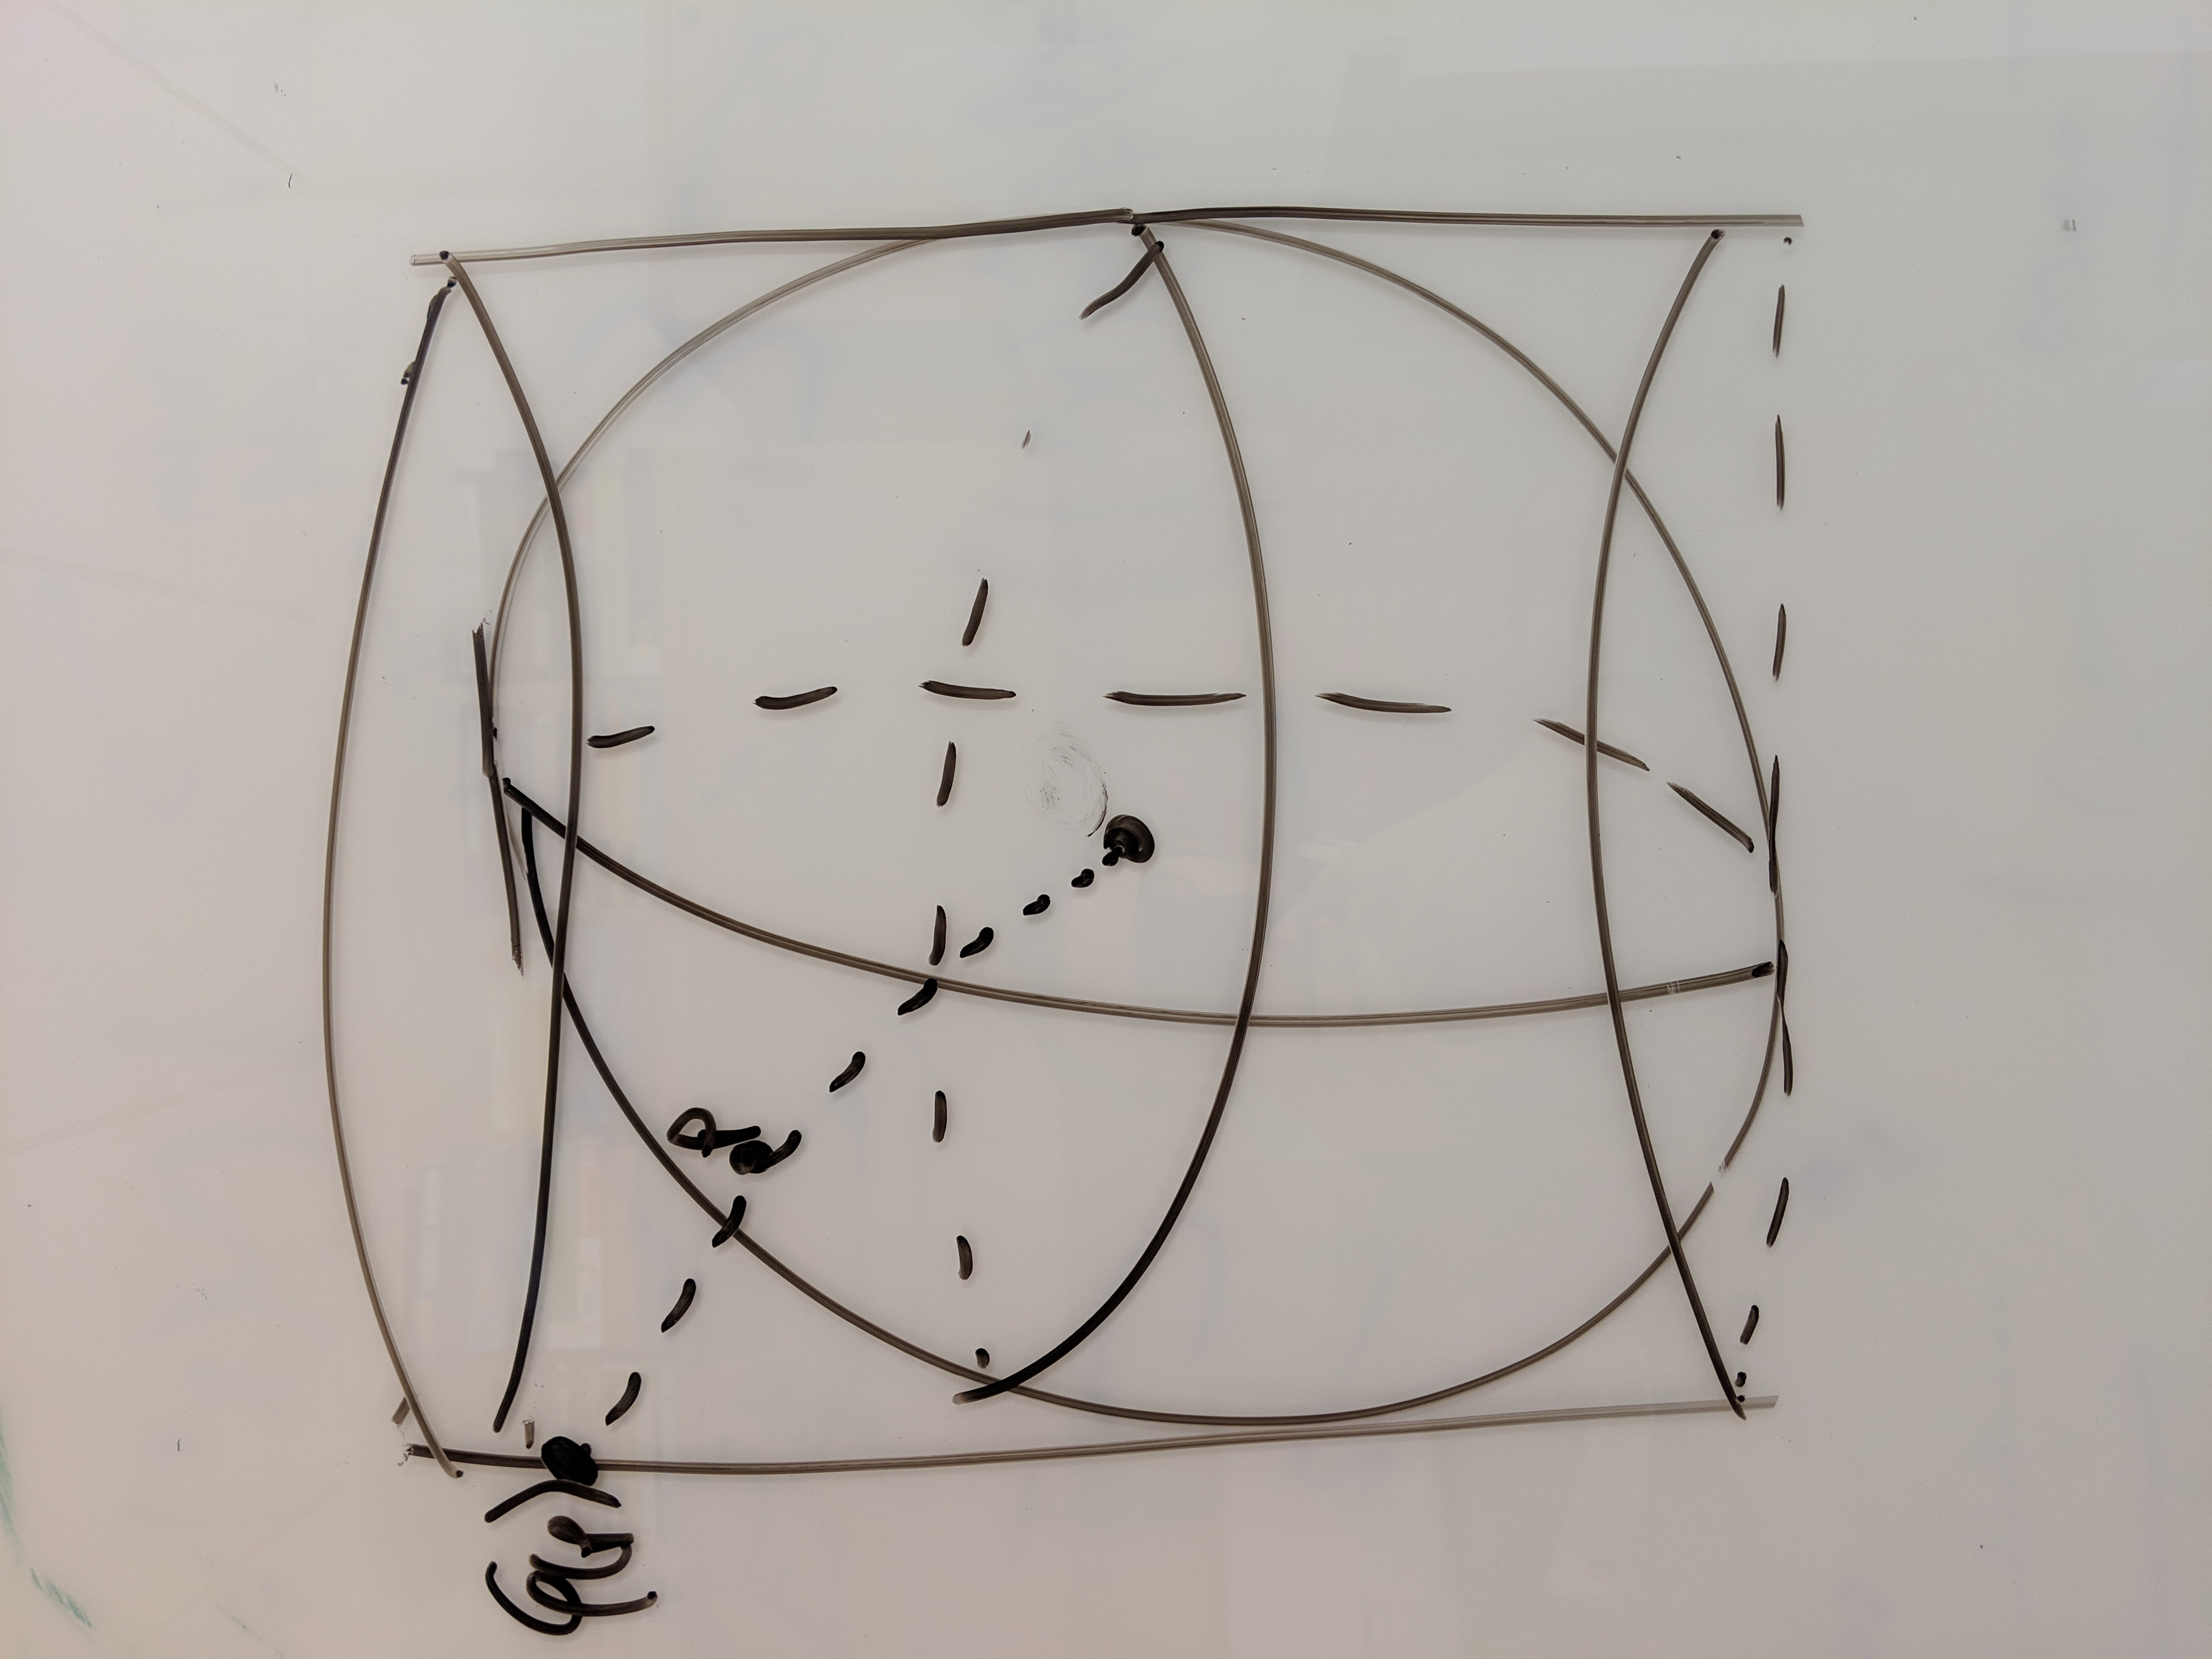 φ(p)
p